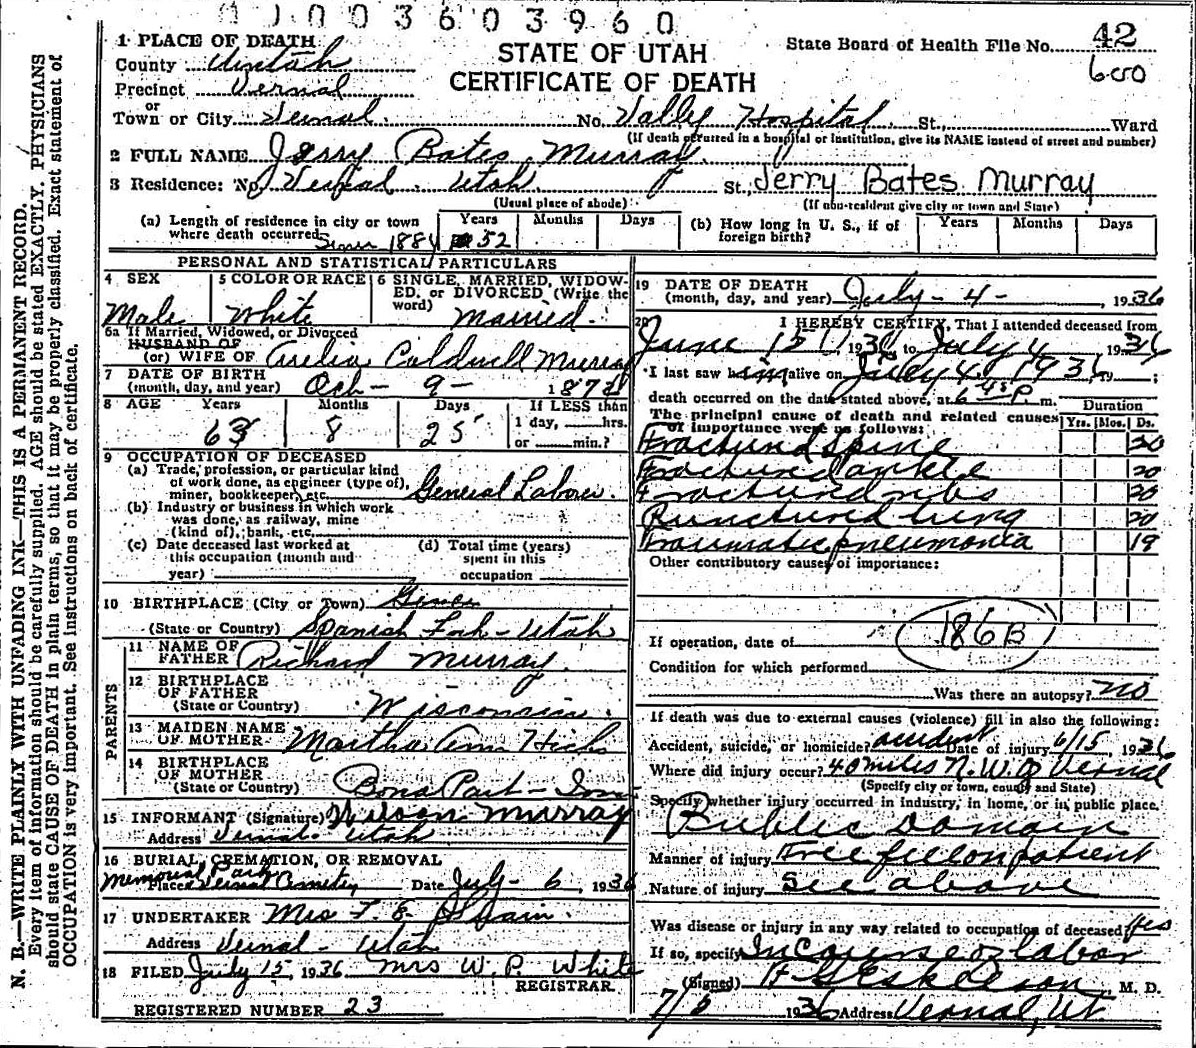 003603960
1 PLACE OF DEATH
County Uintah
Precinct Vernal
or
Town or City Vernal No. Vally Hospital St., Ward
STATE OF UTAH
CERTIFICATE OF DEATH
State Board of Health File No. 42
600
(If death occurred in a hospital or institution, give its NAME instead of street and number)
2 FULL NAME Jerry Bates Murray
3 Residence: No. Vernal Utah St., Jerry Bates Murray
(Usual place of abode) (If non-resident give city or town and State)
(a) Length of residence in city or town where death occurred Since 1884 Years 52 Months Days
(b) How long in U. S., if of foreign birth? Years Months Days
PERSONAL AND STATISTICAL PARTICULARS
4 SEX
Male
5 COLOR OR RACE
White
6 SINGLE, MARRIED, WIDOWED, or DIVORCED (Write the word)
Married
6a If Married, Widowed, or Divorced
HUSBAND OF
(or) WIFE OF Caldwell Murray
7 DATE OF BIRTH
(month, day, and year) Oct - 9 - 187
8 AGE Years 63 Months 8 Days 25 If LESS than
1 day, hrs.
or min.?
9 OCCUPATION OF DECEASED
(a) Trade, profession, or particular kind
of work done, as engineer (type of),
miner, bookkeeper, etc. General Laborer
(b) Industry or business in which work
was done, as railway, mine
(kind of), bank, etc.
(c) Date deceased last worked at
this occupation (month and
year)
(d) Total time (years)
spent in this
occupation
10 BIRTHPLACE (City or Town)
(State or Country) Spanish Fork - Utah
PARENTS
11 NAME OF
FATHER Richard Murray
12 BIRTHPLACE
OF FATHER
(State or Country) Wisconsin
13 MAIDEN NAME
OF MOTHER Martha Ann Hicks
14 BIRTHPLACE
OF MOTHER
(State or Country) Bona Part - Iowa
15 INFORMANT (Signature) Wilson Murray
Address Vernal Utah
16 BURIAL, CREMATION, OR REMOVAL
Memorial Park
Place Vernal Cemetery Date July - 6, 1936
17 UNDERTAKER Mrs
Address Vernal - Utah
18 FILED July 15, 1936 Mrs W. P. White
REGISTRAR
REGISTERED NUMBER 23
19 DATE OF DEATH
(month, day, and year) July - 4 -, 1936
20 I HEREBY CERTIFY, That I attended deceased from
June 15, 1936 to July 4, 1936
I last saw him alive on July 4, 1936, 19 ;
death occurred on the date stated above, at 6 45 P m.
The principal cause of death and related causes
of importance were as follows:
Duration
Yrs. Mos. Ds.
Fractured spine 20
Fractured ankle 20
Fractured ribs 20
Punctured lung 20
Traumatic pneumonia 19
Other contributory causes of importance:
186B
If operation, date of
Condition for which performed
Was there an autopsy? no
If death was due to external causes (violence) fill in also the following:
Accident, suicide, or homicide? accident Date of injury 6/15, 1936
Where did injury occur? 40 miles N.W. of Vernal
(Specify city or town, county and State)
Specify whether injury occurred in industry, in home, or in public place.
Public Domain
Manner of injury Tree fell on patient
Nature of injury See above
Was disease or injury in any way related to occupation of deceased? Yes
If so, specify In Course of labor
(Signed) Eskelson, M. D.
7/6 1936 Address Vernal, Ut.
N. B.—WRITE PLAINLY WITH UNFADING INK—THIS IS A PERMANENT RECORD.
Every item of information should be carefully supplied. AGE should be stated EXACTLY. PHYSICIANS
should state CAUSE OF DEATH in plain terms, so that it may be properly classified. Exact statement of
OCCUPATION is very important. See instructions on back of certificate.